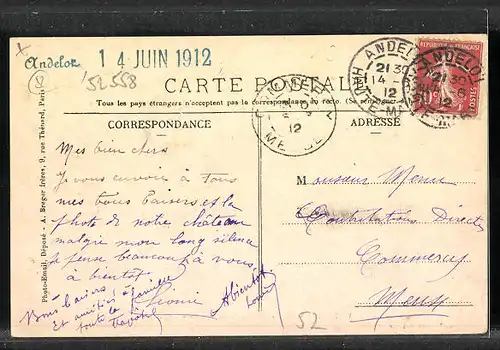 Andelot 14 JUIN 1912
52558
52
CARTE POSTALE
Tous les pays étrangers n'acceptent pas la correspondance au recto. (Se renseigner à la
CORRESPONDANCE
ADRESSE
ANDELOT
21 30
14 - 6
12
HTE MARNE
ANDELOT
21 30
12
REPUBLIQUE FRANÇAISE
COMMERCY
12
MEUSE
Photo-Email, Déposé - A. Breger frères, 9, rue Thénard, Paris
Mes bien chers
Je vous envoie à tous
mes bons baisers et la
photo de notre château
malgré mon long silence
je pense beaucoup à vous
à bientôt
Léonie
Bons baisers
Et amitiés à
toute la famille
A bientôt
Monsieur Menu
Contributions Direct
Commercy
Meuse
52